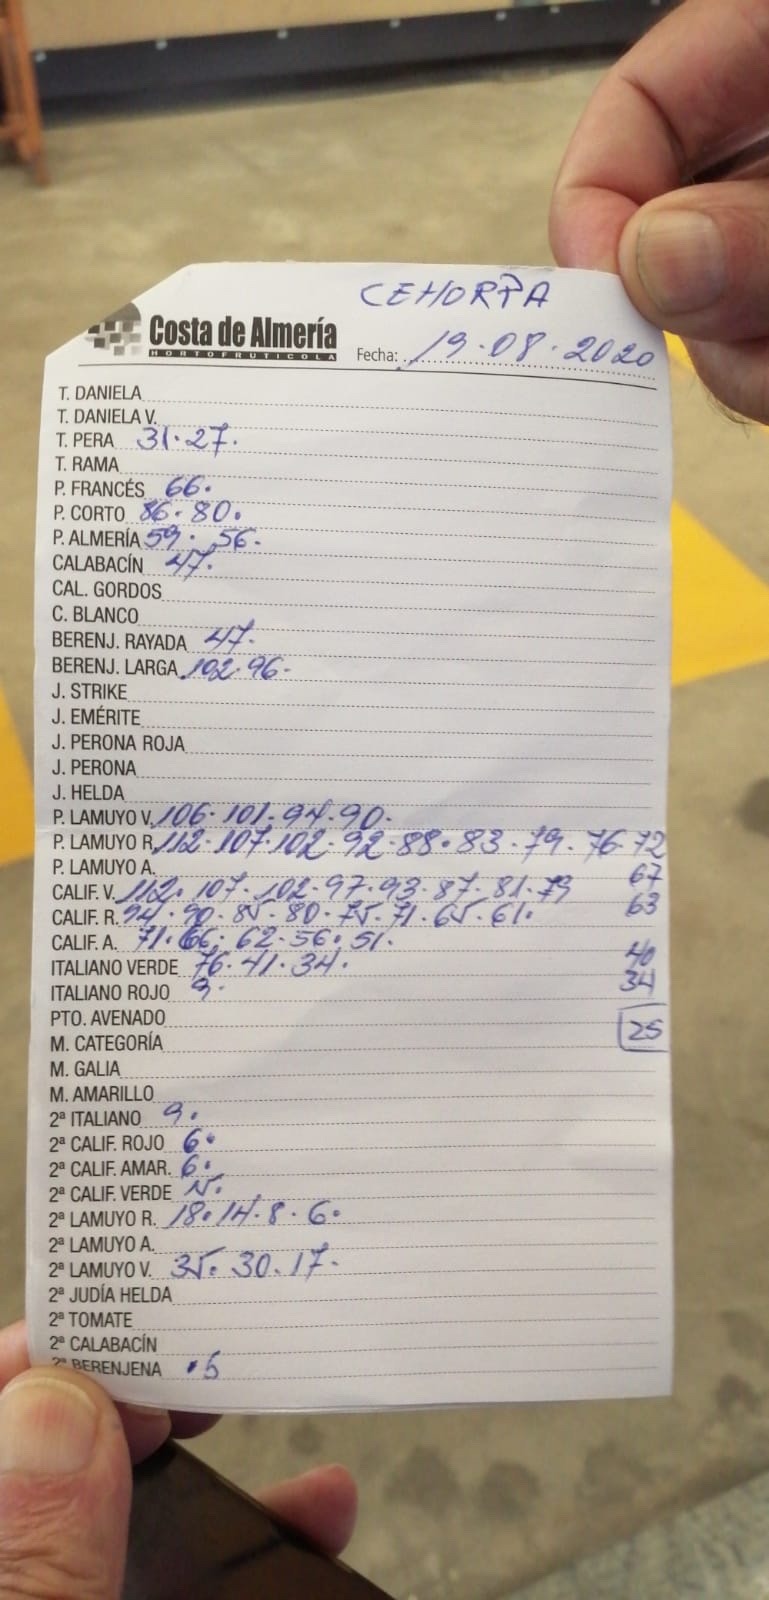 CEHORPA
Costa de Almería
HORTOFRUTICOLA
Fecha: 19.08.2020
T. DANIELA
T. DANIELA V.
T. PERA 31.27.
T. RAMA
P. FRANCÉS 66.
P. CORTO 86.80.
P. ALMERÍA 59. 56.
CALABACÍN 47.
CAL. GORDOS
C. BLANCO
BERENJ. RAYADA 47.
BERENJ. LARGA 102.96.
J. STRIKE
J. EMÉRITE
J. PERONA ROJA
J. PERONA
J. HELDA
P. LAMUYO V. 106.101.94.90.
P. LAMUYO R. 112.107.102.92.88.83.79.76.72
P. LAMUYO A. 67
CALIF. V. 112.107.102.97.93.87.81.79
CALIF. R. 94.90.85.80.75.71.65.61. 63
CALIF. A. 71.66.62.56.51.
ITALIANO VERDE 76.41.34. 40
ITALIANO ROJO 9. 34
PTO. AVENADO 25
M. CATEGORÍA
M. GALIA
M. AMARILLO
2ª ITALIANO 9.
2ª CALIF. ROJO 6.
2ª CALIF. AMAR. 6.
2ª CALIF. VERDE
2ª LAMUYO R. 18.14.8.6.
2ª LAMUYO A.
2ª LAMUYO V. 35.30.17.
2ª JUDÍA HELDA
2ª TOMATE
2ª CALABACÍN
2ª BERENJENA .5